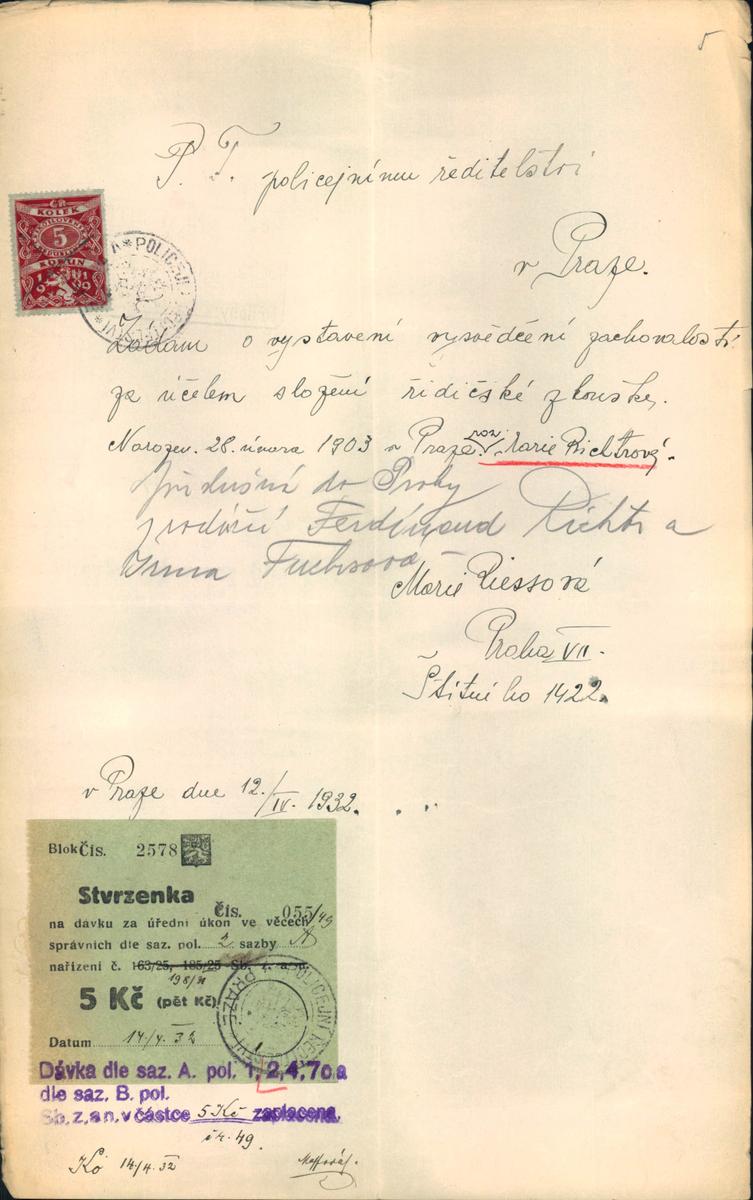 5
P. T. policejnímu ředitelství
v Praze.
ČR
KOLEK
5
KORUN
POLICEJNÍ
Žádám o vystavení vysvědčení zachovalosti
za účelem složení řidičské zkoušky.
Narozen. 28. února 1903 v Praze. roz. Marie Richtrová.
příslušná do Prahy
rodiče Ferdinand Richtr a
Irma Fuchsová –
Marie Riessová
Praha VII.
Štítného 1422.
v Praze dne 12./IV. 1932.
Blok Čís. 2578
Stvrzenka
Čís. 055/49
na dávku za úřední úkon ve věcech
správních dle saz. pol. 2 sazby A
nařízení č. 163/25, 185/25 Sb. z. a n.
198/31
5 Kč (pět Kč)
POLICEJNÍ ŘEDITELSTVÍ
PRAZE
Datum 14/4. 32
Dávka dle saz. A. pol. 1, 2, 4, 7 c a
dle saz. B. pol.
Sb. z. a n. v částce 5 Kč zaplacena.
čr. 49.
Kó 14/4. 32